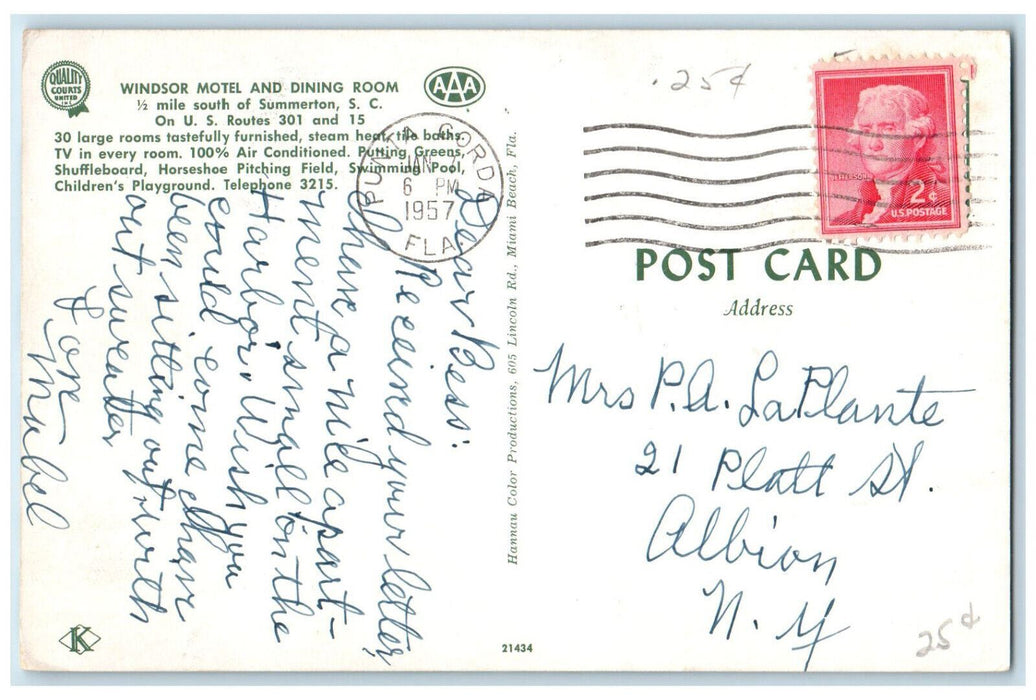 QUALITY
COURTS
UNITED
INC
WINDSOR MOTEL AND DINING ROOM
½ mile south of Summerton, S. C.
On U. S. Routes 301 and 15
30 large rooms tastefully furnished, steam heat, tile baths.
TV in every room. 100% Air Conditioned. Putting Greens,
Shuffleboard, Horseshoe Pitching Field, Swimming Pool,
Children's Playground. Telephone 3215.
AAA
PUNTA GORDA
JAN
6 PM
1957
FLA.
Dear Bess:
Received your letter,
I have a nice apart-
ment small on the
Harbor. Wish you
could come I have
been sitting out with
out sweater
Love
Mabel
K
Hannau Color Productions, 605 Lincoln Rd., Miami Beach, Fla.
21434
.25¢
JEFFERSON
2¢
U.S. POSTAGE
POST CARD
Address
Mrs P.A. LaPlante
21 Platt St.
Albion
N. Y
25¢